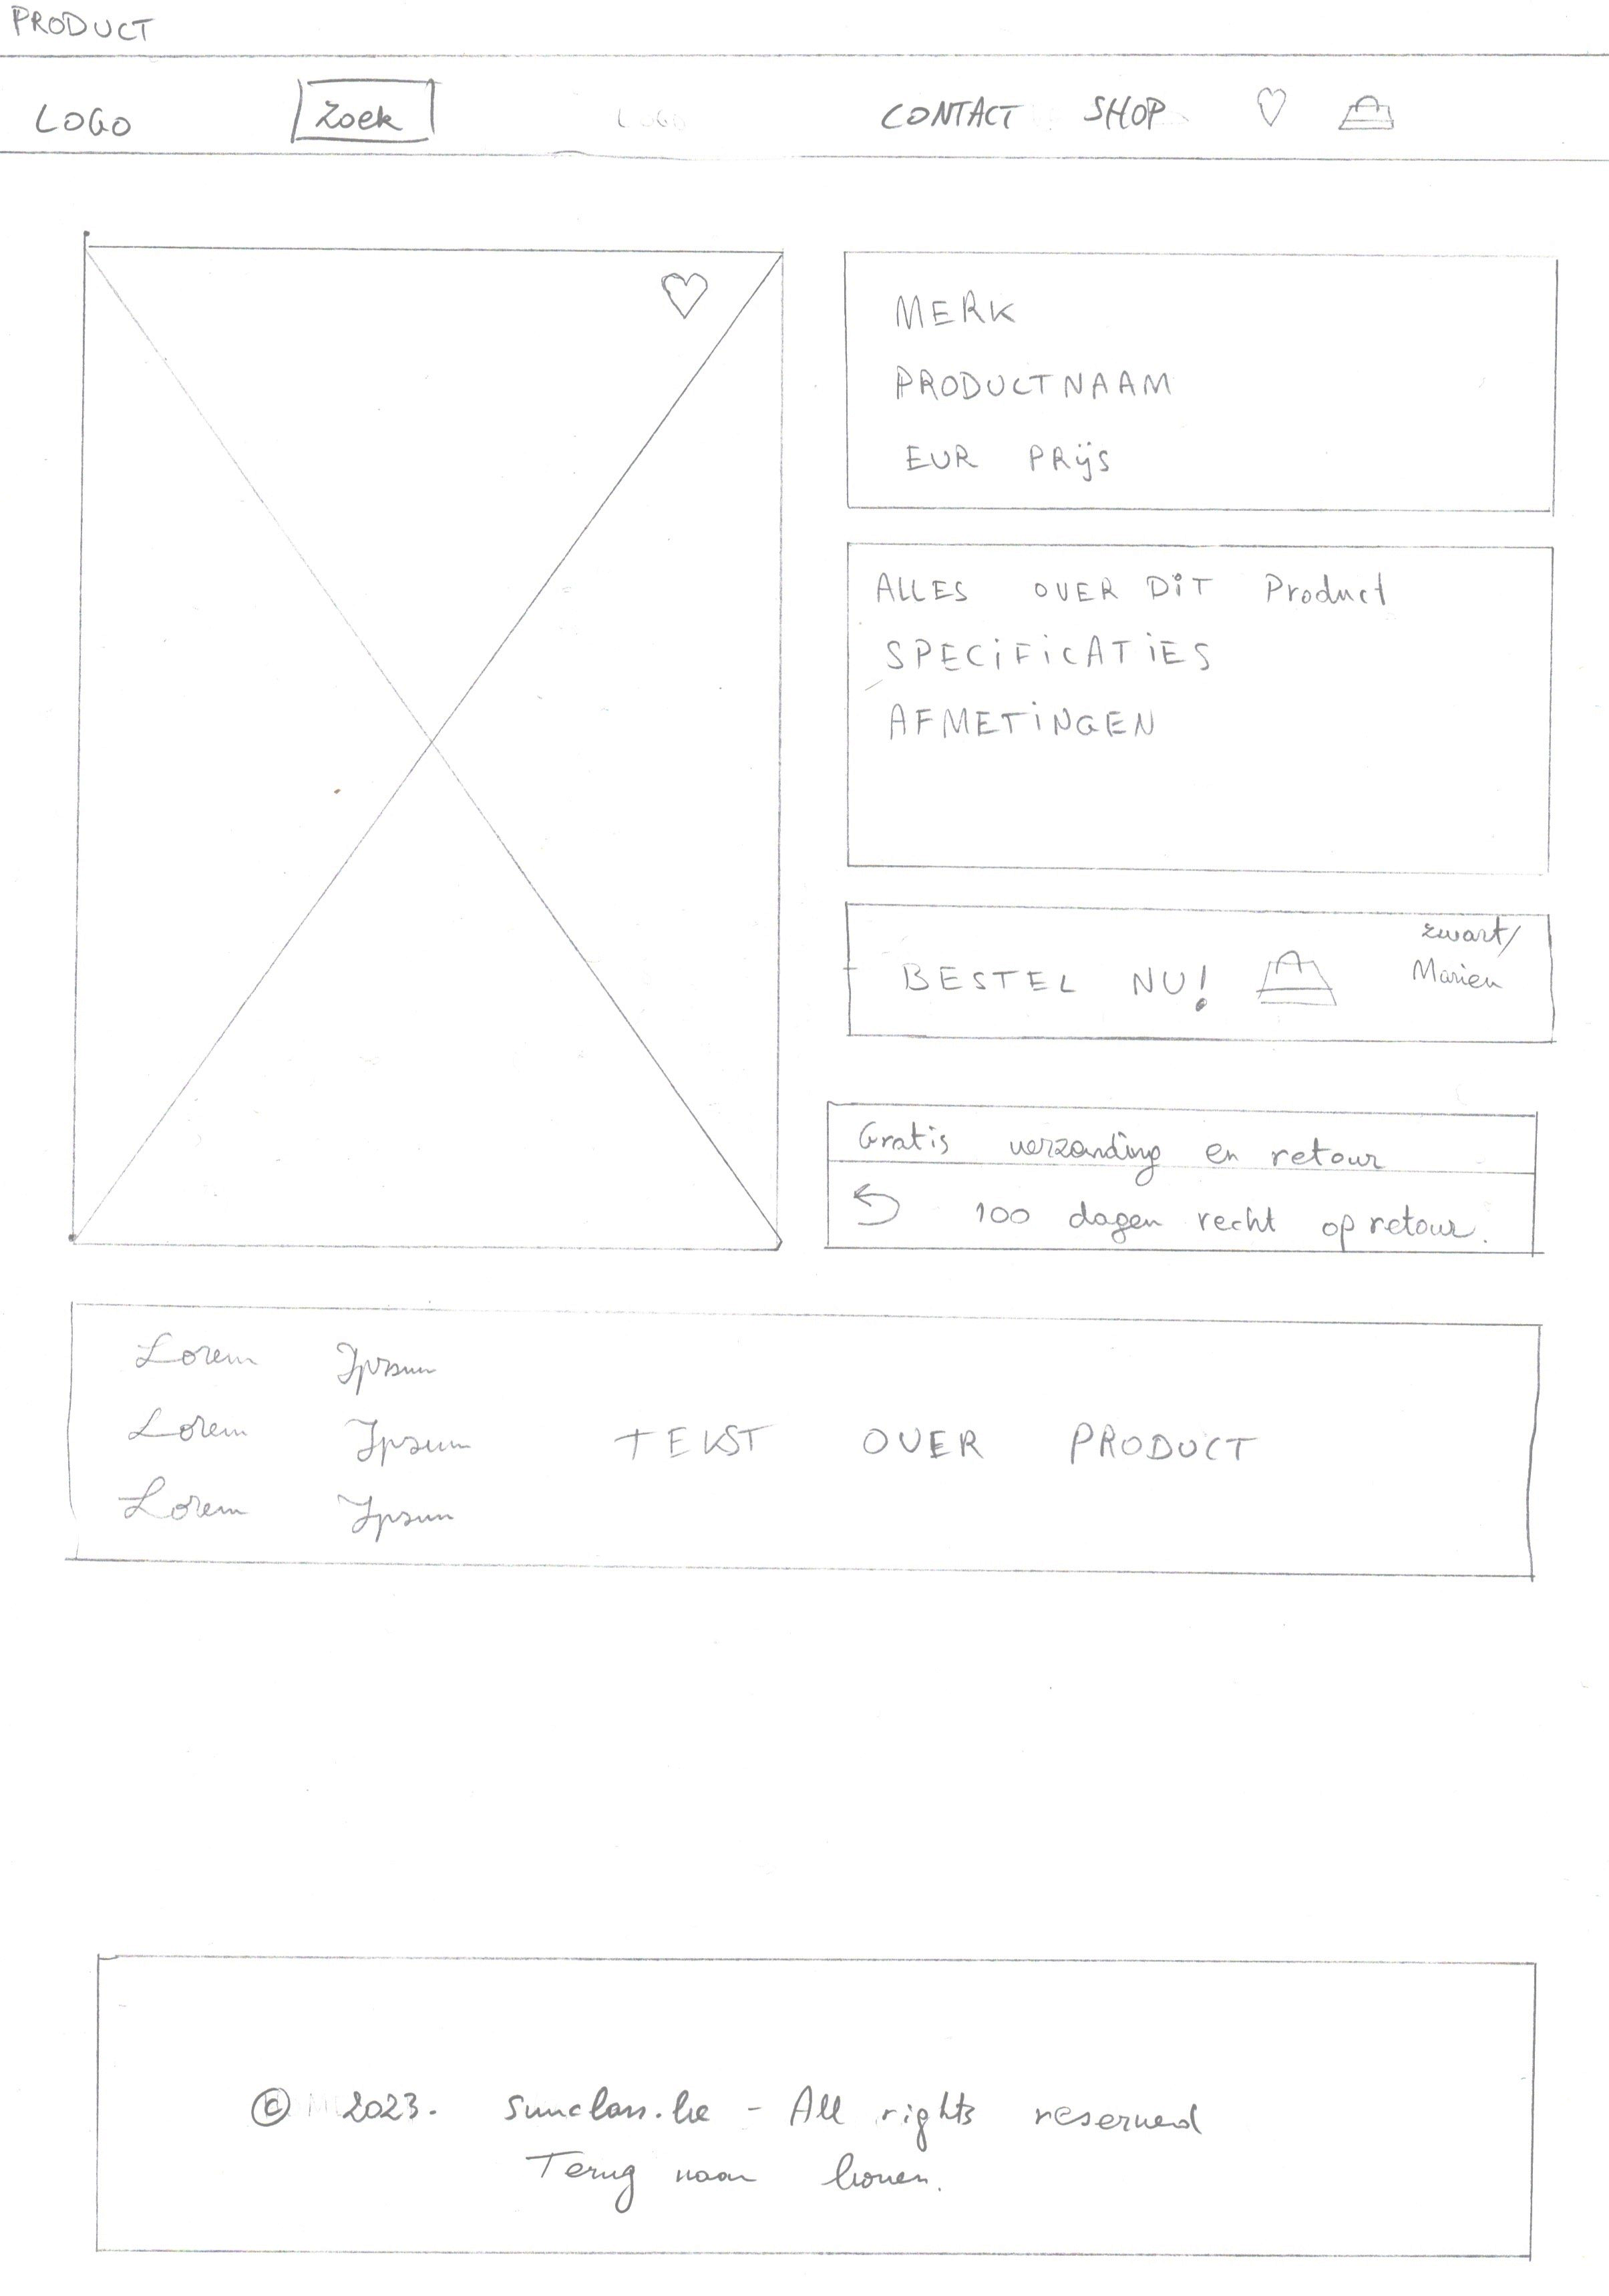 PRODUCT
LOGO Zoek LOGO CONTACT SHOP
MERK
PRODUCTNAAM
EUR PRijS
ALLES OVER DiT Product
SPECiFiCATiES
AFMETiNGEN
zwart/
BESTEL NU! Marien
Gratis verzending en retour
100 dagen recht op retour.
Lorem Ipsum
Lorem Ipsum TEKST OVER PRODUCT
Lorem Ipsum
© 2023. sunclass.be - All rights reserved
Terug naar boven.